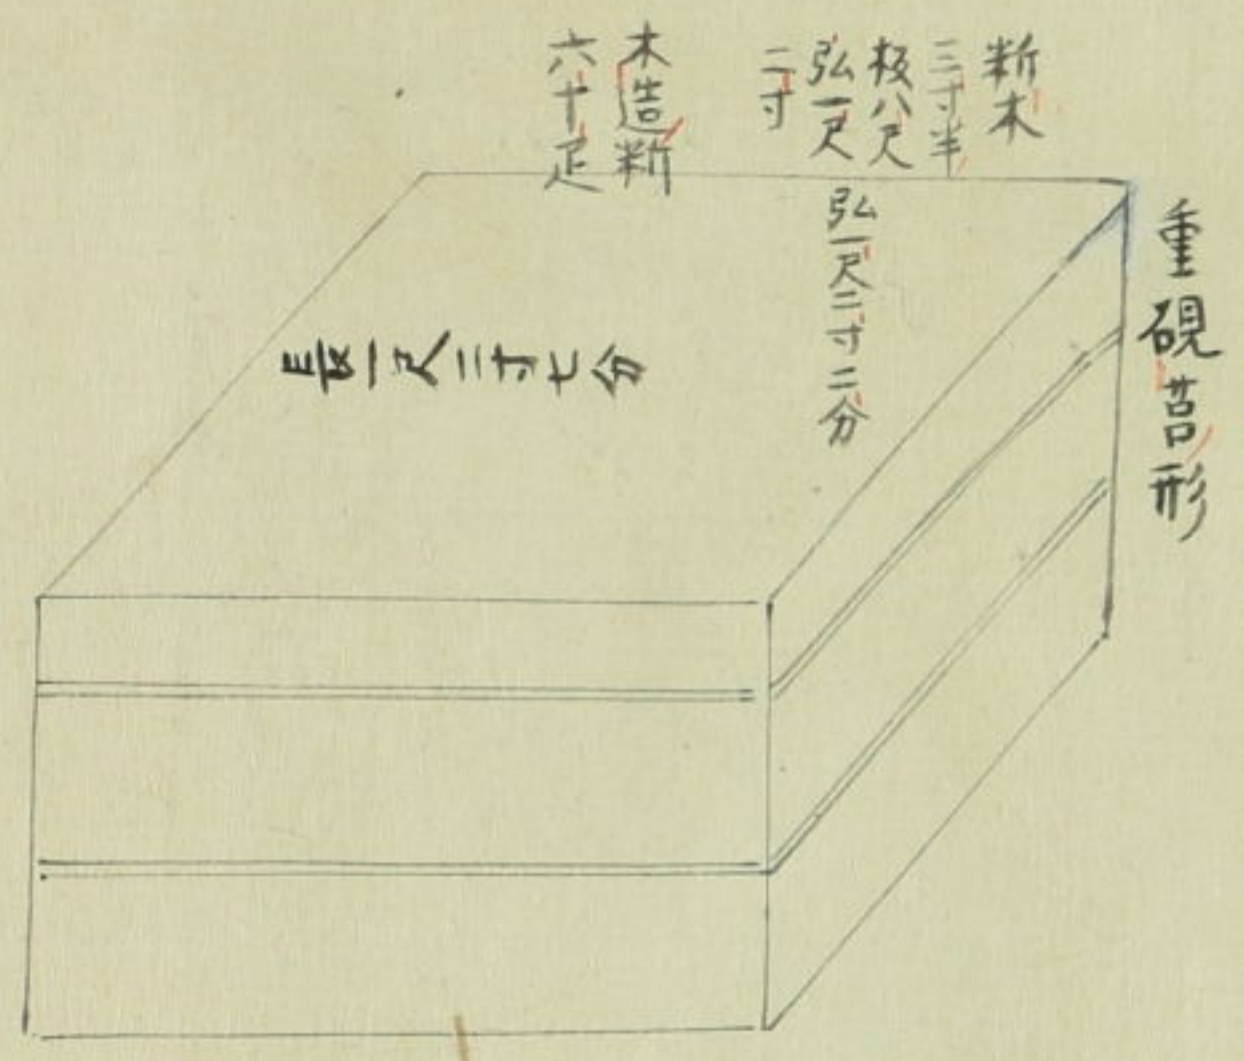 重硯莒形
断木
三寸半
板八尺
弘一尺
二寸
木造断
六十疋
弘一尺二寸二分
長一尺三寸七分